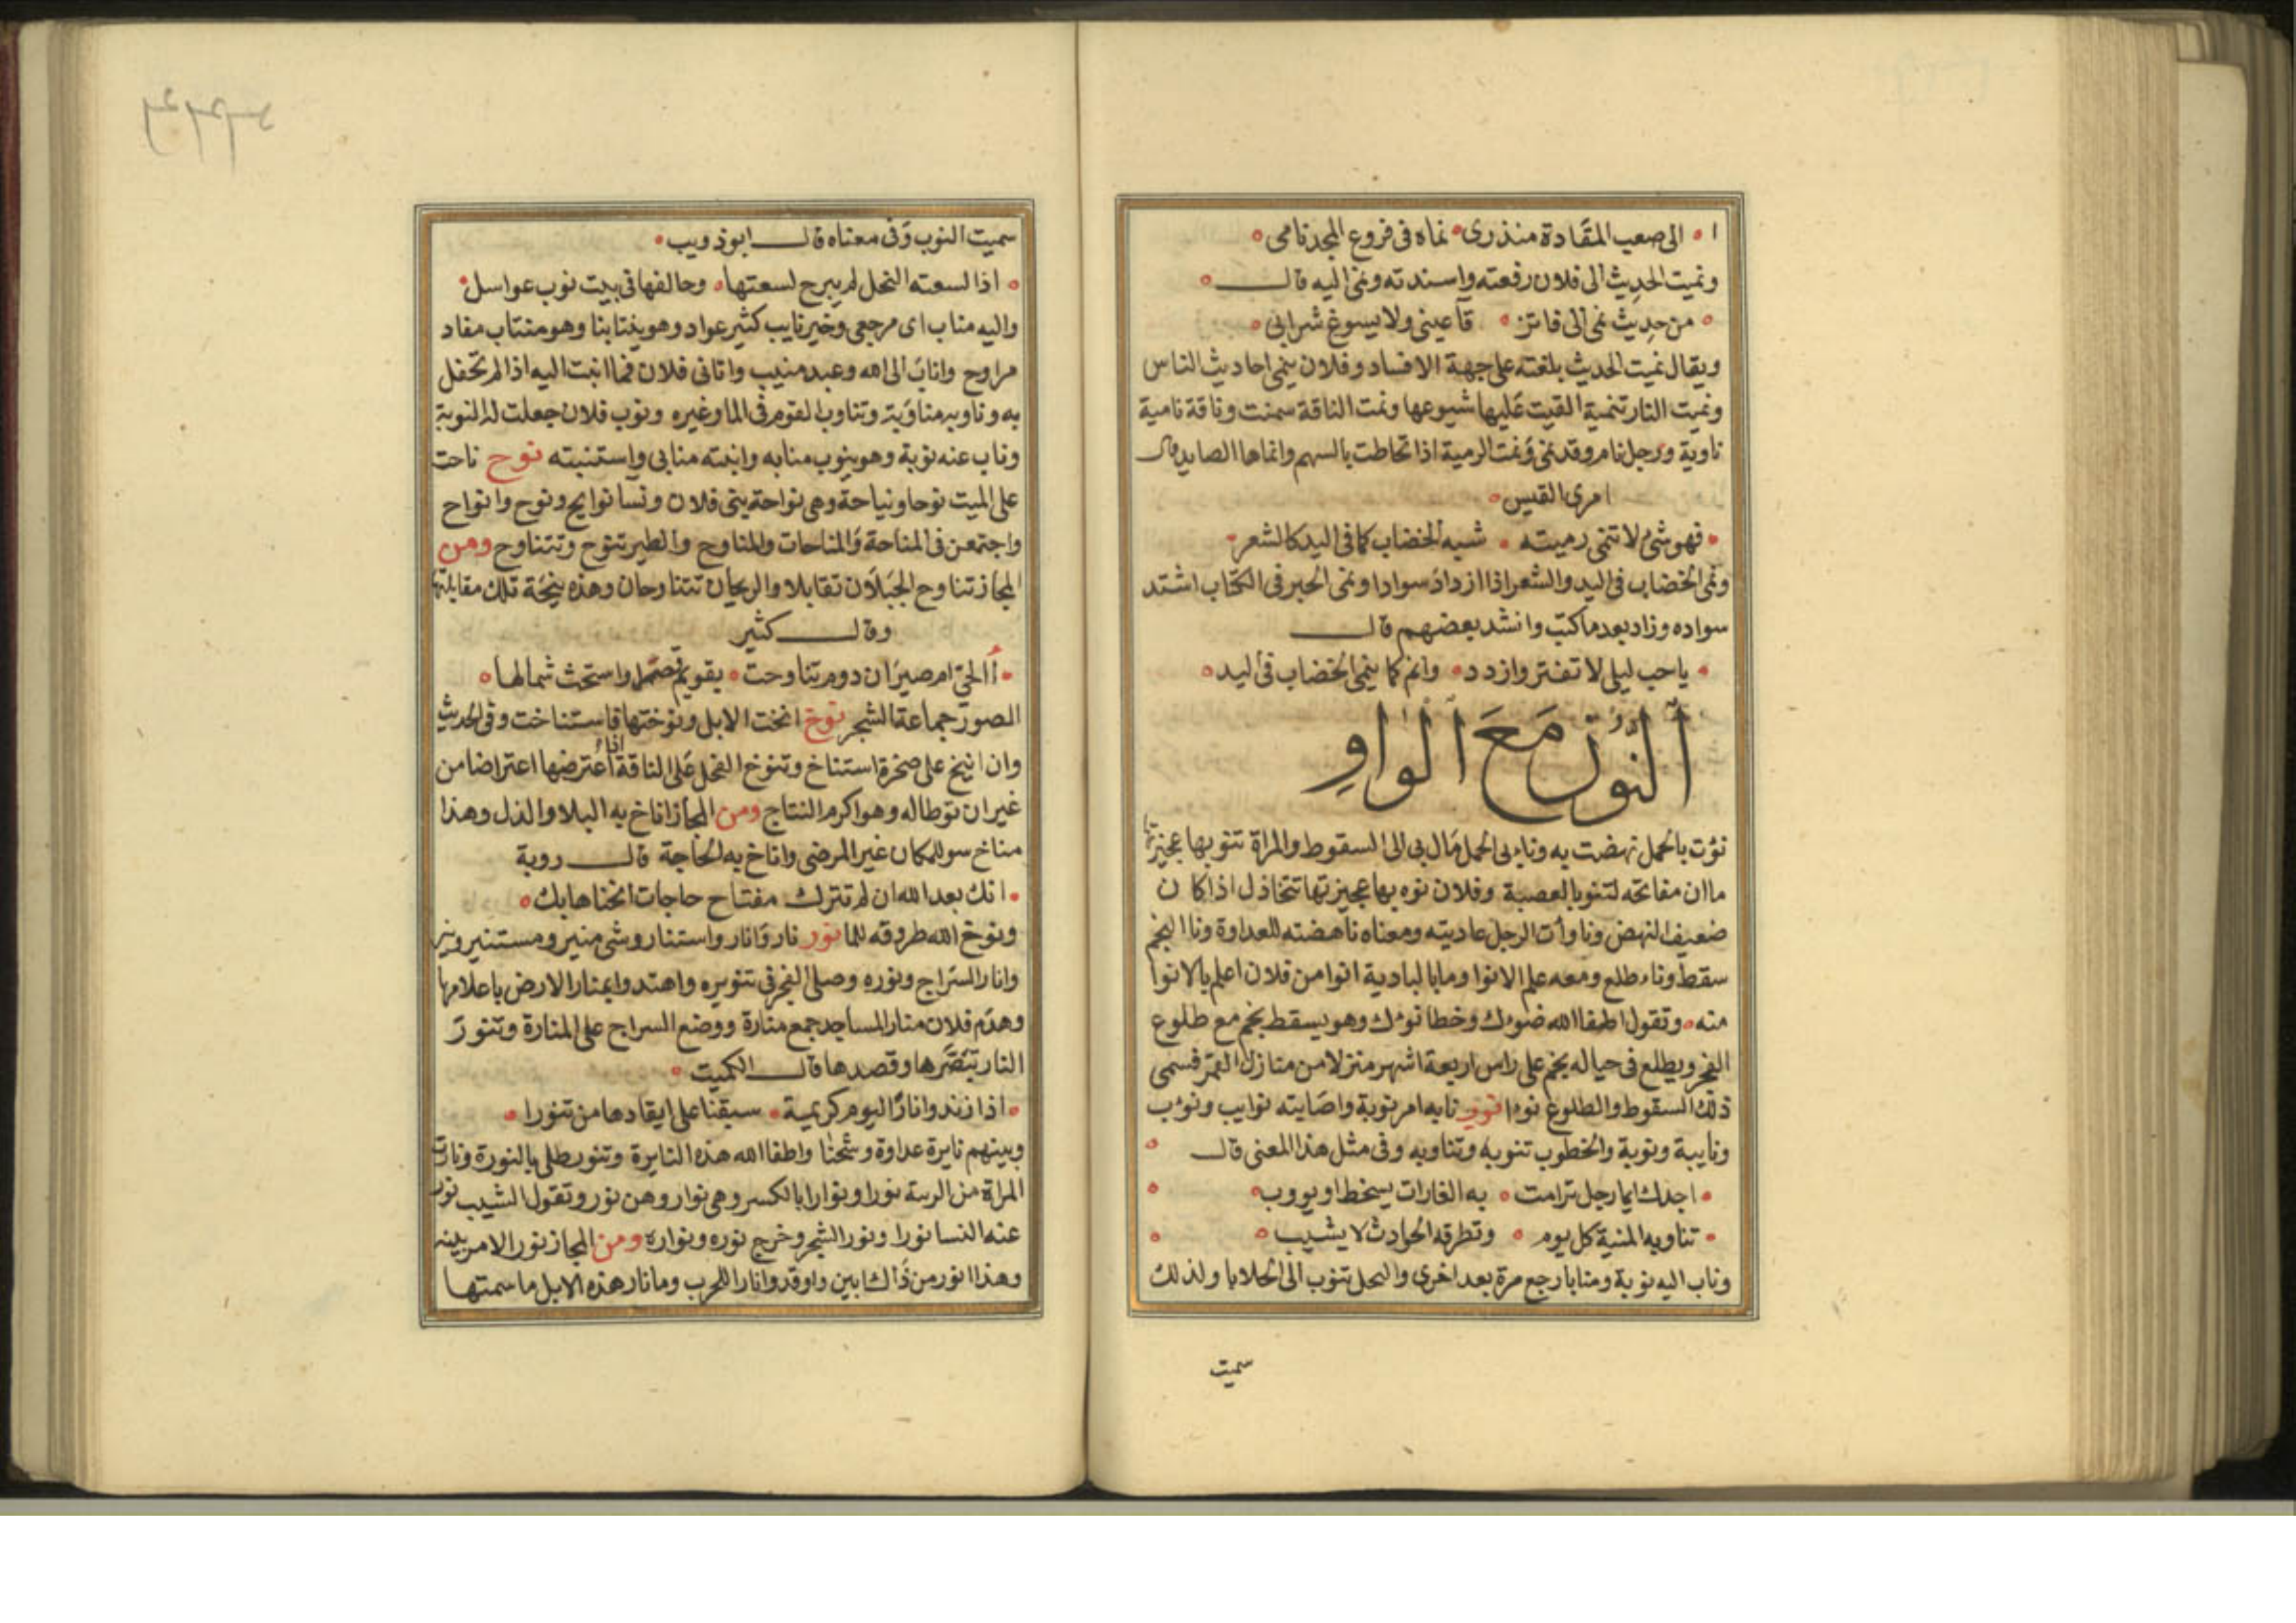 ا الى صعب المقادة منذرى نماه فى فروع المجد نامى
ونميت الحديث الى فلان رفعته واسندته ونمى اليه قال
من حديث نمى الى فاتز قا عينى ولا يسوغ شرابى
ويقال نميت الحديث بلغته على جهة الافساد وفلان ينمى احاديث الناس
ونميت النار تنمية القيت عليها شيوعها ونمت الناقة سمنت وناقة نامية
ناوية ورجل نام وقد نمى ونمت الرمية اذا تحاطت بالسهم وانماها الصايد قال
امرى القيس
فهو شئ لا تنمى رميته شبه الخضاب كما فى اليد كالشعر
ونمى الخضاب فى اليد والشعر اذا ازداد سوادا ونمى الحبر فى الكتاب اشتد
سواده وزاد بعد ما كتب وانشد بعضهم قال
ياحب ليلى لا تفتر وازدد وانم كما ينمى الخضاب فى ليد
النون مع الواو
نؤت بالحمل نهضت به وناء بى الحمل مال بى الى السقوط والمراة تنو بها عجيزتها
ما ان مفاتحه لتنو بالعصبة وفلان نوه بها عجيزتها تتخاذل اذا كان
ضعيف النهض وناوأت الرجل عاديته ومعناه ناهضته للعداوة ونا النجم
سقط وناء طلع ومعه علم الانوا وما بالبادية انوا من فلان اعلم بالانوا
منه وتقول اطفا الله ضوءك وخطا نوءك وهو يسقط نجم مع طلوع
الفجر ويطلع فى حياله نجم على راس اربعة اشهر منزلا من منازل القمر فسمى
ذلك السقوط والطلوع نوءا نوب نابه امر نوبة واصابته نوايب ونوب
ونايبة ونوبة والخطوب تنوبه وتناوبه وفى مثل هذا المعنى قال
اجدك ايما رجل ترامت به الغارات يسخط او يووب
تناوبه المنية كل يوم وتطرقه الحوادث لا يشيب
وناب اليه نوبة ومنابا رجع مرة بعد اخرى والنحل تنوب الى الخلايا ولذلك
سميت
سميت النوب وفى معناه قال ابو ذويب
اذا لسعته النحل لم يبرح لسعتها وحالفها فى بيت نوب عواسل
واليه مناب اى مرجعى وخير نايب كثير عواد وهو ينتابنا وهو منتاب مفاد
مراوح واناب الى الله وعبد منيب واتانى فلان فما انبت اليه اذا لم تحفل
به وناوبه مناوبة وتناوب القوم فى الما وغيره ونوب فلان جعلت له النوبة
وناب عنه نوبة وهو ينوب منابه وانبته منابى واستنبته نوح ناحت
على الميت نوحا ونياحة وهى نواحة بنى فلان ونسا نوايح ونوح وانواح
واجتمعن فى المناحة والمناحات والمناوح والطير تنوح وتتناوح ومن
المجاز تناوح الجبلان تقابلا والريحان تتناوحان وهذه نيحة تلك مقابلتها
وقال كثير
أالحى ام صيران دوم تناوحت بقويم واستحثت شمالها
الصور جماعة الشجر نوخ انخت الابل ونوختها فاستناخت وفى الحديث
وان انيخ على صخرة استناخ وتنوخ الفحل على الناقة اذا اعترضها اعتراضا من
غير ان توطا له وهو اكرم النتاج ومن المجاز اناخ به البلا والذل وهذا
مناخ سو للمكان غير المرضى واناخ به الحاجة قال روبة
انك بعد الله ان لم تترك مفتاح حاجات انخناها بك
ونوخ الله طروقه للما نور نار وانار واستنار وشى منير ومستنير ونير
وانار السراج ونوره وصلى الفجر فى تنويره واهتدوا بمنار الارض باعلامها
وهدم فلان منار المساجد جمع منارة ووضع السراج على المنارة وتنور
النار تبصرها وقصدها قال الكميت
اذا زندوا نارا ليوم كريهة سبقنا على ايقادها من تنورا
وبينهم نايرة عداوة وشحنا واطفا الله هذه النايرة وتنور طلى بالنورة ونارت
المراة من الريبة نورا ونوارا بالكسر وهى نوار وهن نور وتقول الشيب نور
عنه النسا نورا ونور الشجر وخرج نوره ونواره ومن المجاز نور الامر بينه
وهذا انور من ذاك ابين واوقدوا نار الحرب وما نار هذه الابل ما سمتها